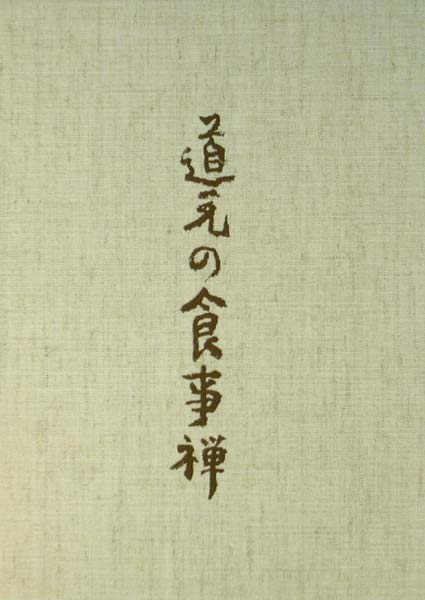 道元の食事禅